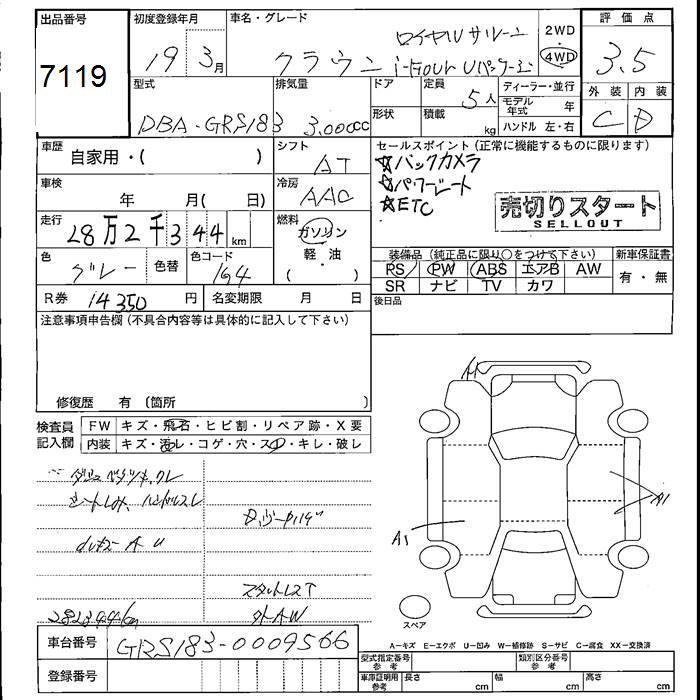 出品番号
7119
初度登録年月
19 3月
車名・グレード
ロイヤルサルーン
クラウン i-Four Uパッケージ
2WD
4WD
評価点
3.5
外装 内装
C D
型式
DBA-GRS183
排気量
3.000cc
ドア
形状
定員
5人
積載
kg
ディーラー・並行
モデル年式 年
ハンドル 左・右
車歴
自家用・( )
シフト
AT
車検
年 月( 日)
冷房
AAC
走行
28万2千344km
燃料
ガソリン
軽・油
( )
色
グレー
色替
色コード
1G4
R券 14350円
名変期限 月 日
セールスポイント(正常に機能するものに限ります)
☆バックカメラ
☆パワーシート
☆ETC
売切りスタート
SELLOUT
装備品(純正品に限り○をつけて下さい)
RS PW ABS エアB AW
SR ナビ TV カワ
新車保証書
有・無
後日品
注意事項申告欄(不具合内容等は具体的に記入して下さい)
修復歴 有(箇所 )
検査員記入欄
FW キズ・飛石・ヒビ割・リペア跡・X要
内装 キズ・汚レ・コゲ・穴・スレ・キレ・破レ
A U
スタットレスT
外AW
282344km
A1
A1
スペア
A-キズ E-エクボ U-凹み W-補修跡 S-サビ C-腐食 XX-交換済
車台番号
GRS183-0009566
登録番号
型式指定番号 参考
類別区分番号 参考
車庫証明用 参考
長さ cm
幅 cm
高さ cm